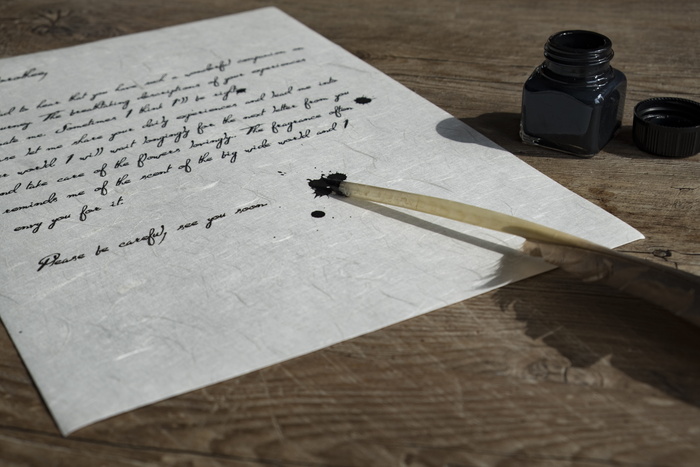 had to hear that you have had a wonderful companion on
journey. The breathtaking descriptions of your experiences
me. Sometimes I think I'll be right
let me share your daily experiences and lead me into
world. I will wait longingly for the next letter from you
and take care of the flowers lovingly. The fragrance often
reminds me of the scent of the big wide world and I
envy you for it.
Please be careful, see you soon